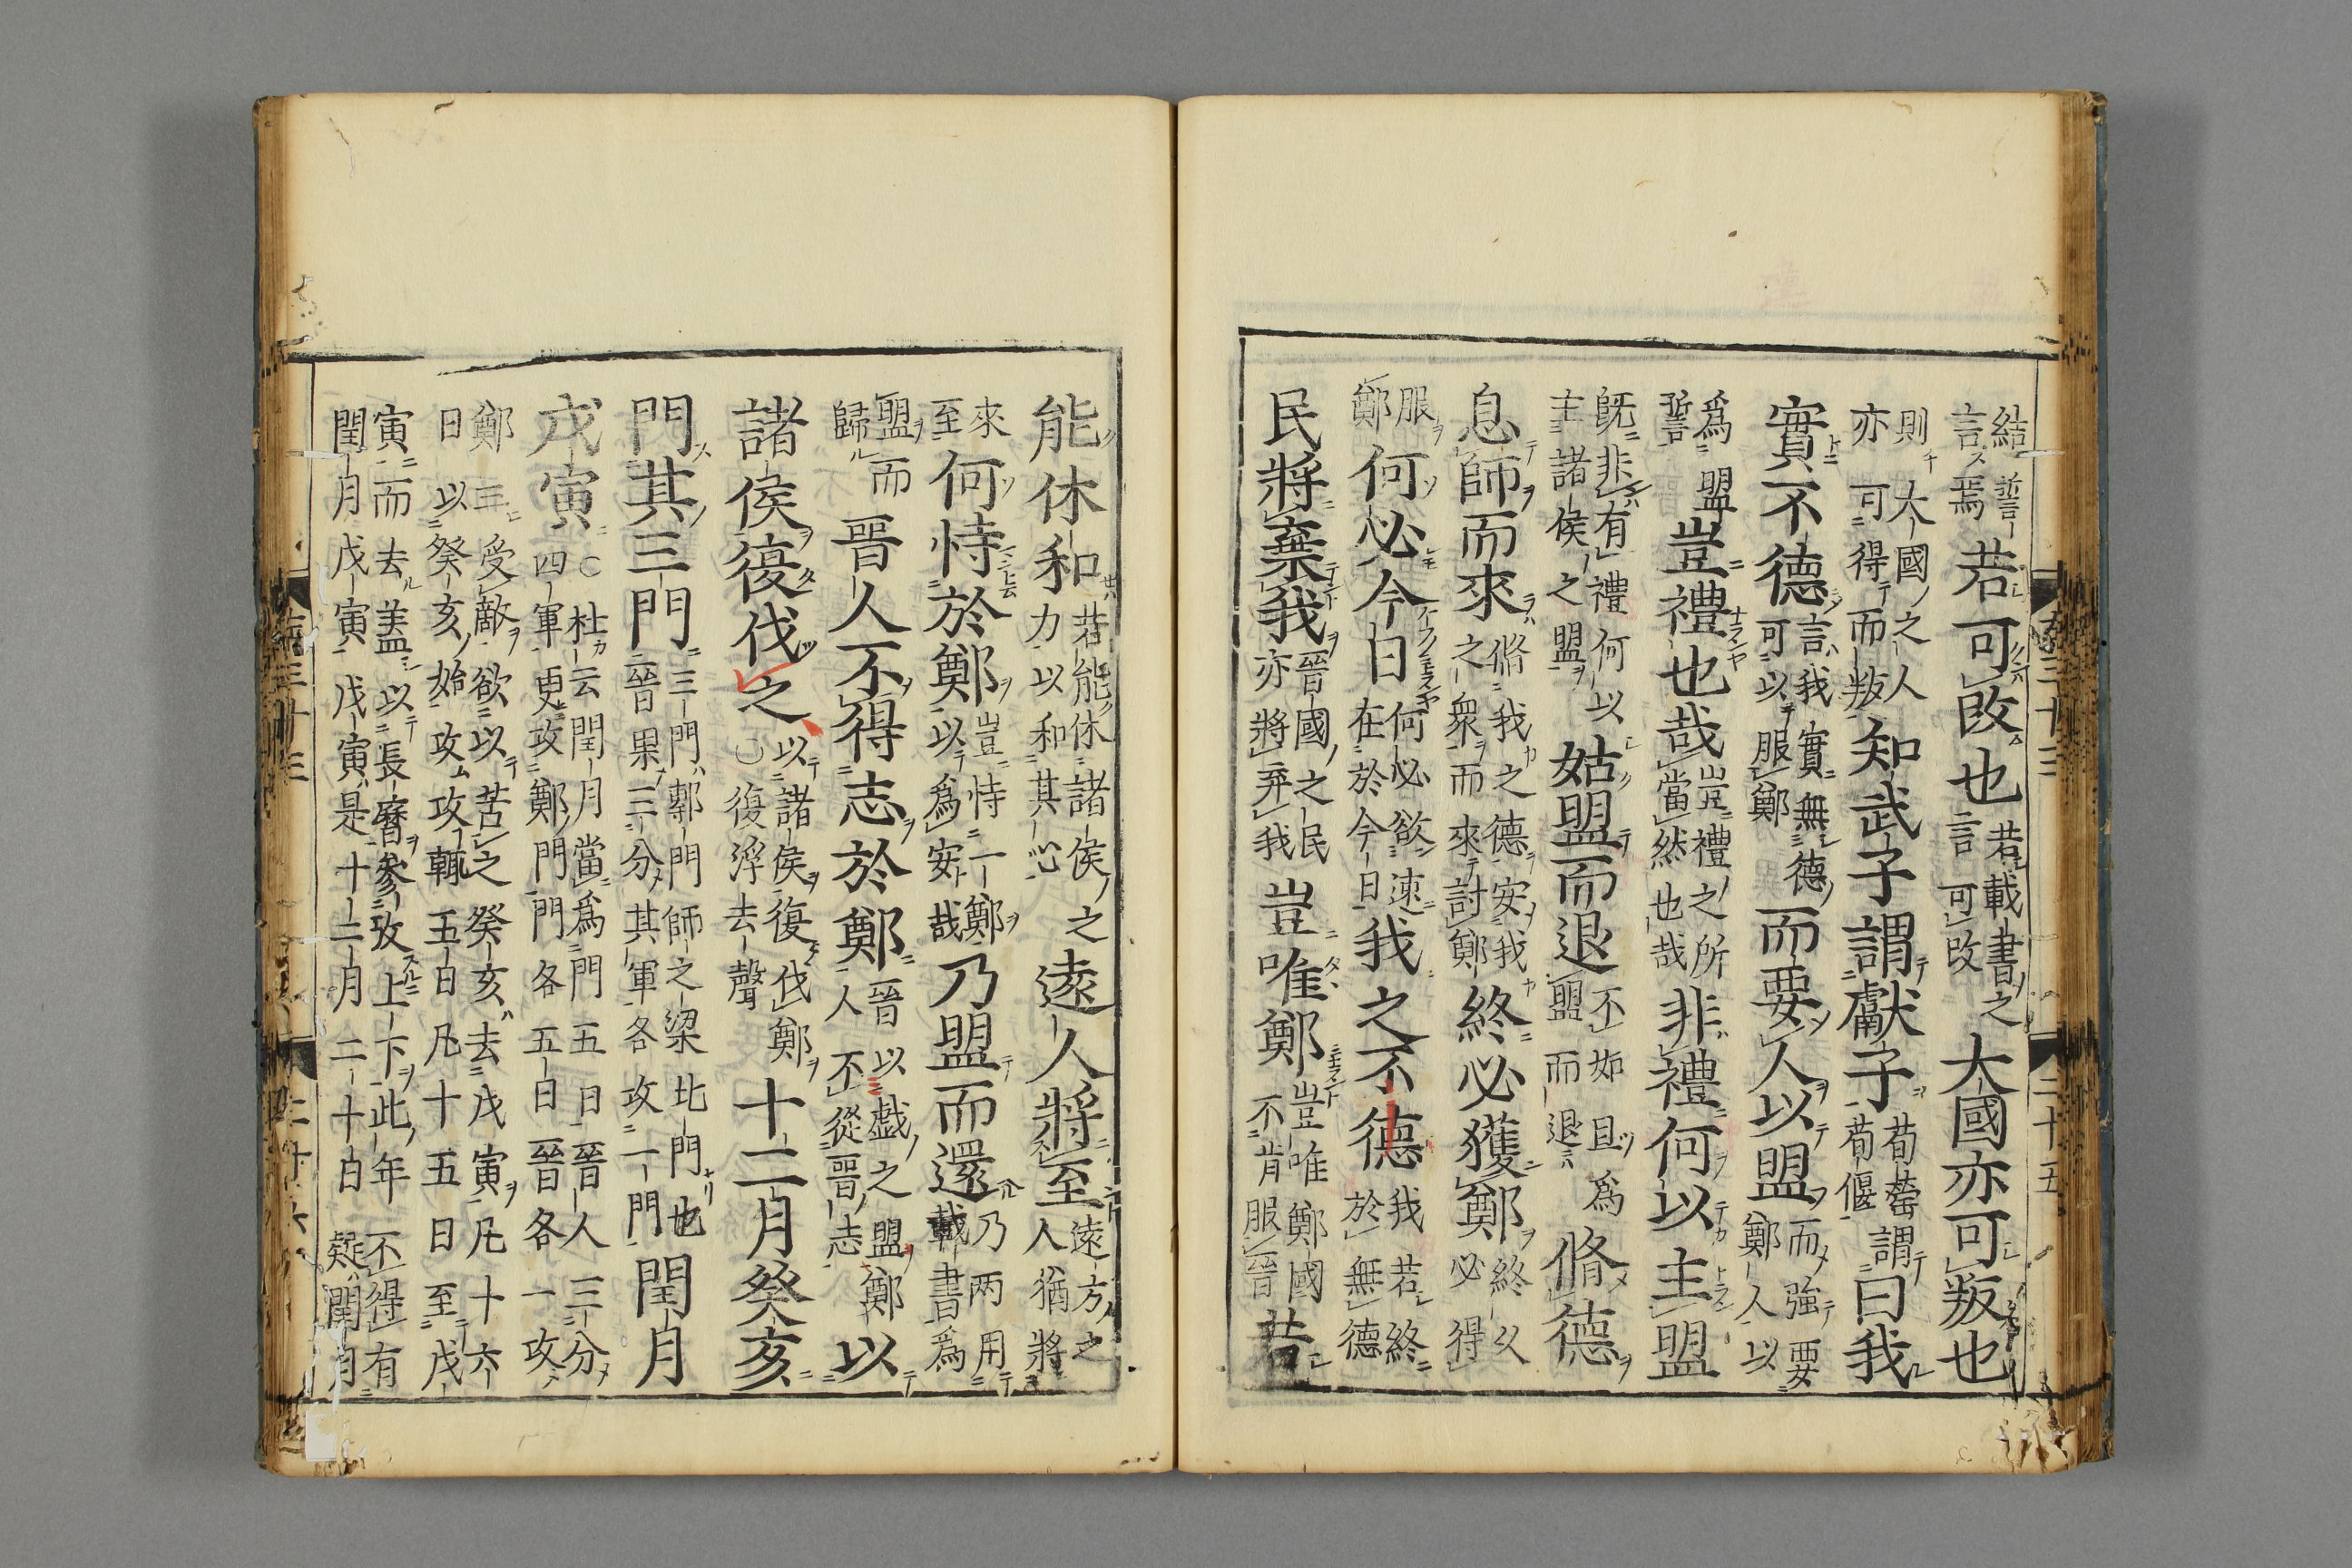 結誓言焉若可改也若載書之言可改大國亦可叛也
則大國之人亦可得而叛知武子謂獻子荀罃謂荀偃曰我
實不德言我實無德可以服鄭而要人以盟而強要鄭人以
爲盟誓豈禮也哉豈禮之所當然也哉非禮何以主盟
旣非有禮何以主諸侯之盟姑盟而退不如且爲盟而退脩德
息師而來脩我之德安我之衆而來討鄭終必獲鄭終乆必得
服鄭何必今日何必欲速在於今日我之不德我若終於無德
民將棄我晉國之民亦將弃我豈唯鄭豈唯鄭國不肯服晉若
能休和若能休諸侯之力以和其心遠人將至遠方之人猶將
來至何恃於鄭豈恃一鄭以爲安哉乃盟而還乃两用載書爲
盟而歸晉人不得志於鄭晉以戲之盟鄭人不從晉志以
諸侯復伐之以諸侯復伐鄭〇復浮去聲十二月癸亥
門其三門三門鄟門師之梁北門也晉果三分其軍各攻一門閏月
戊寅〇杜云閏月當爲門五日晉人三分四軍更攻鄭門門各五日晉各一攻
鄭三受敵欲以苦之癸亥去戊寅凡十六日以癸亥始攻攻輒五日凡十五日至戊
寅而去盖以長曆參攷上下此年不得有閏月戊寅戊寅是十二月二十日疑閏月
左三十三
二十五
左三十三
二十六